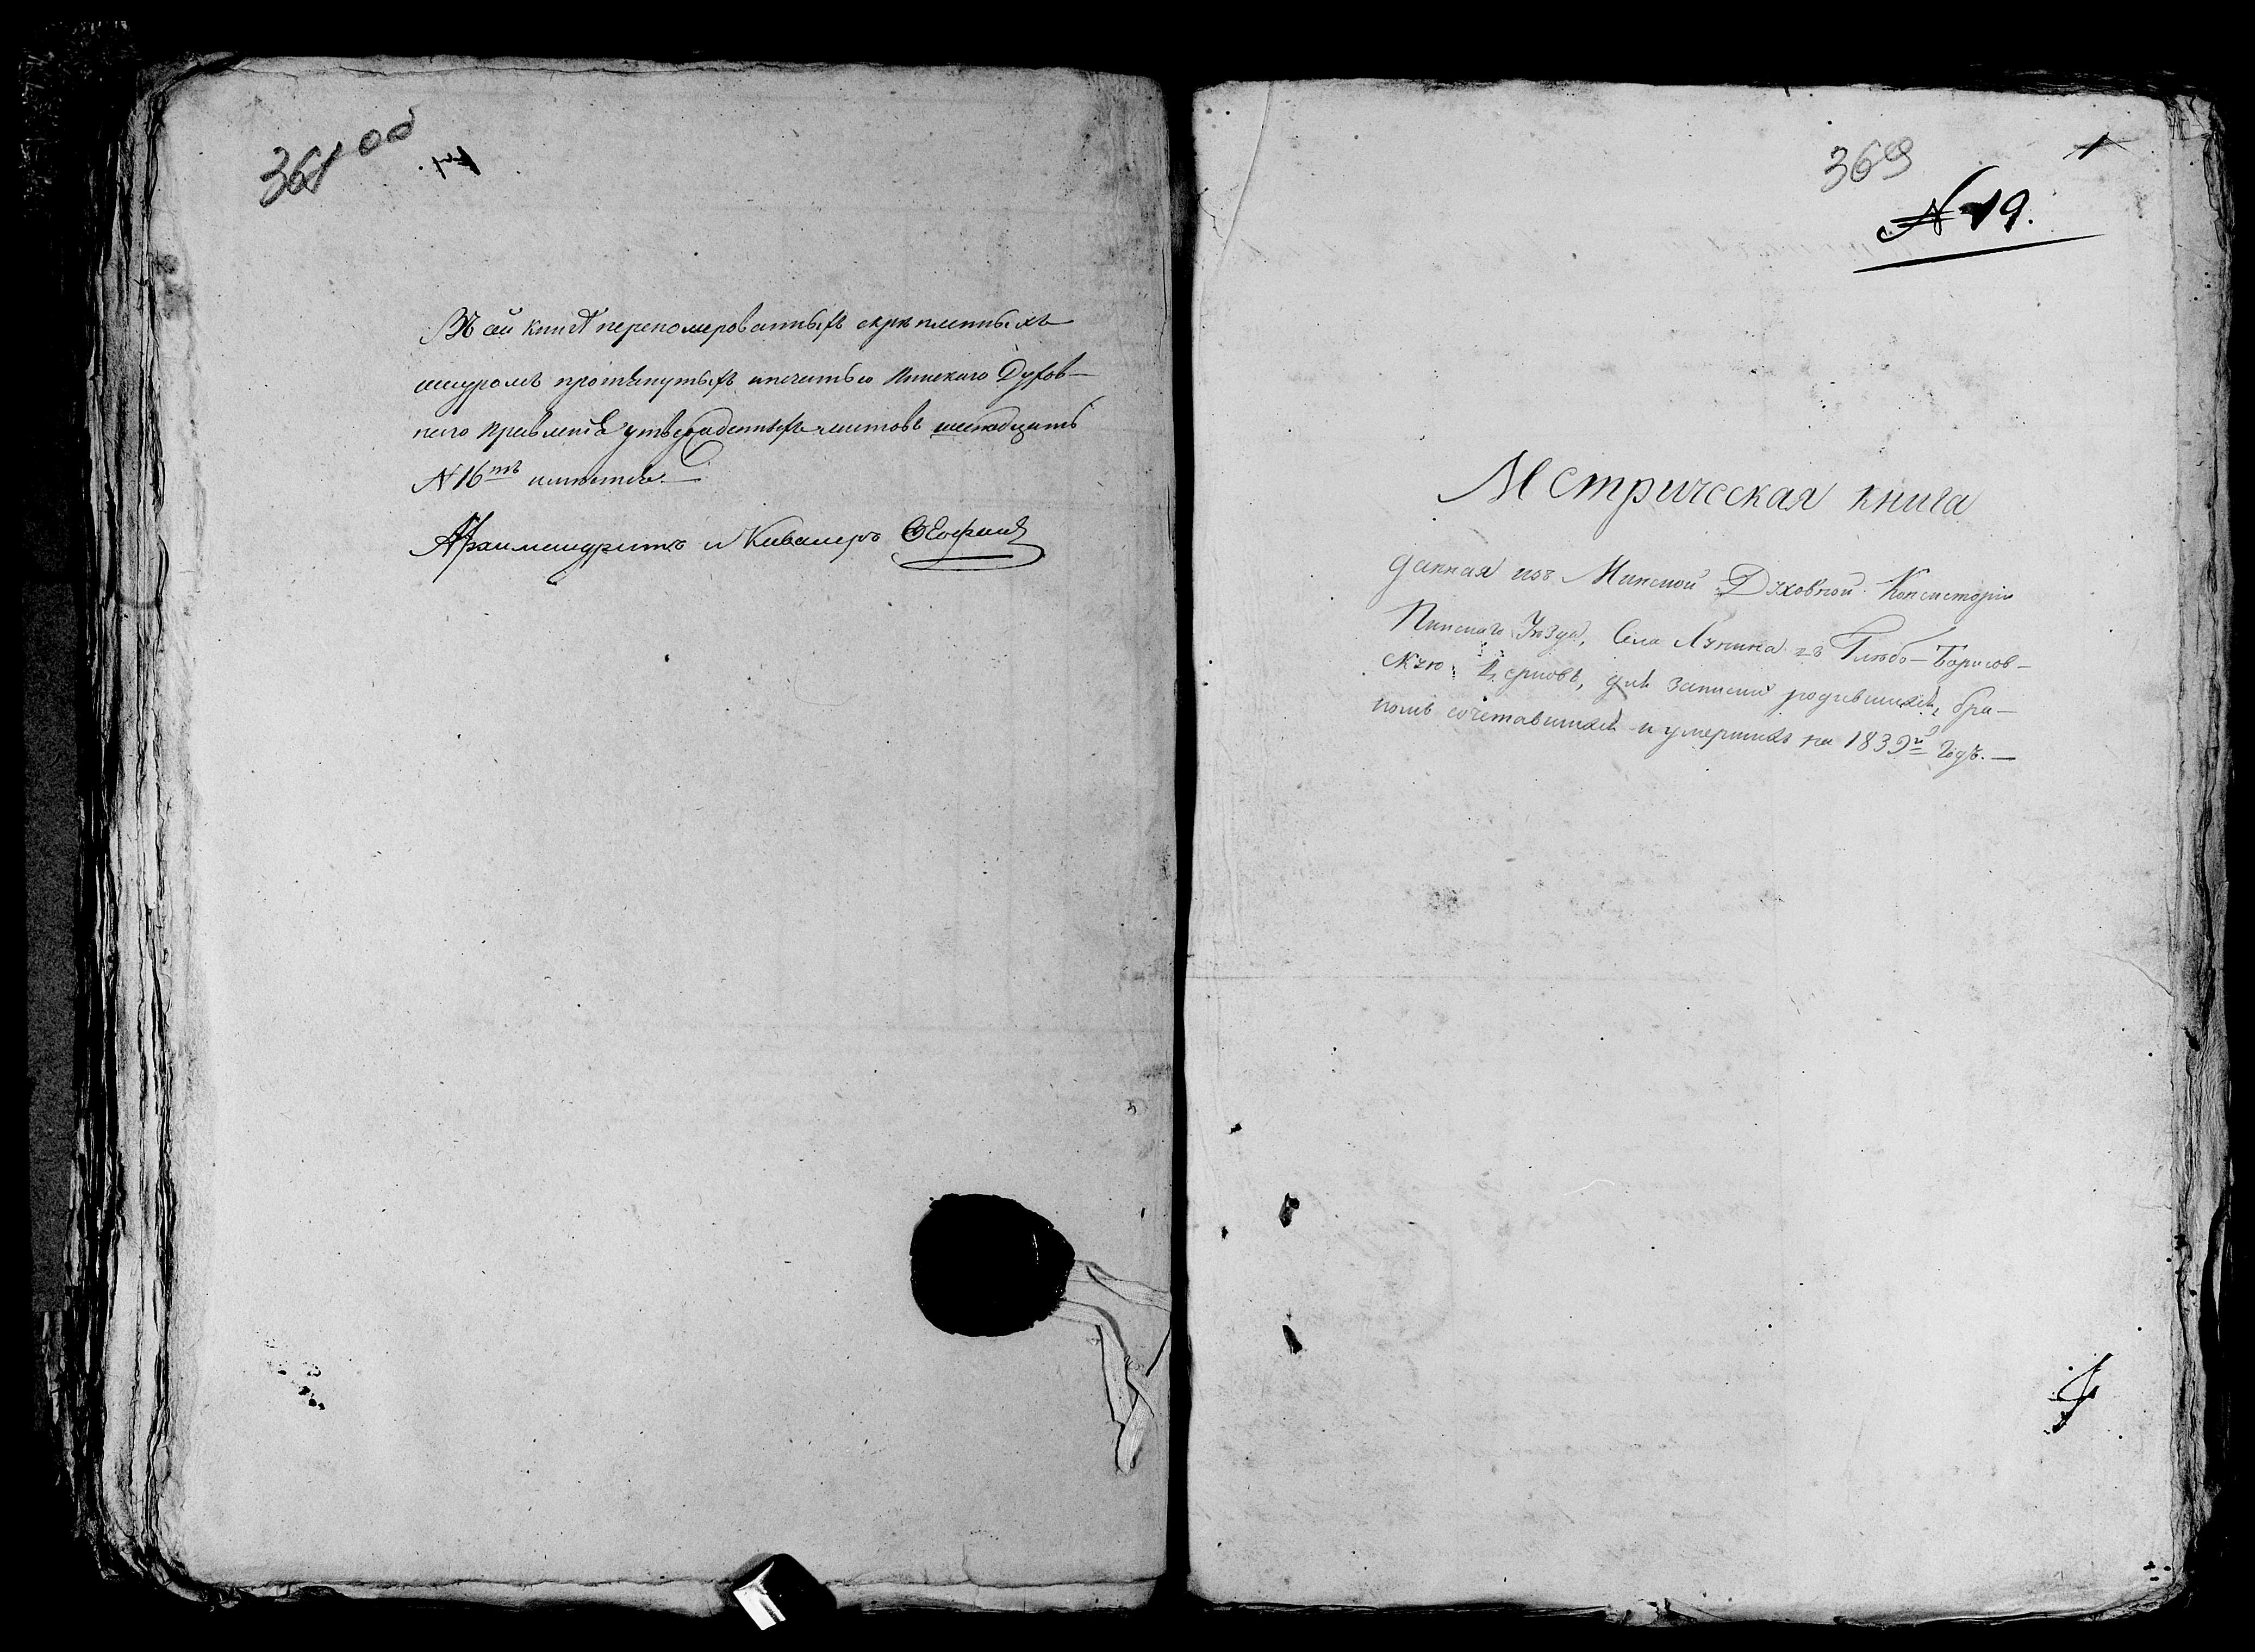 361 об
В сей книгѣ перенумерованныхъ скрѣпленныхъ
шнуромъ протянутыхъ и печатью Пинскаго Духов-
наго Правленія утвержденныхъ листовъ шеснадцать
№ 16тъ имѣется.—
Архимандритъ и Кавалеръ
369
1
№ 19.
Метрическая книга
данная изъ Минской Духовной Консисторіи
Пинскаго Уѣзда, Села Лунина въ Глѣбо-Борисов-
скую Церковь, для записки родившихся, бра-
комъ сочетавшихся и умершихъ на 1839й Годъ.—